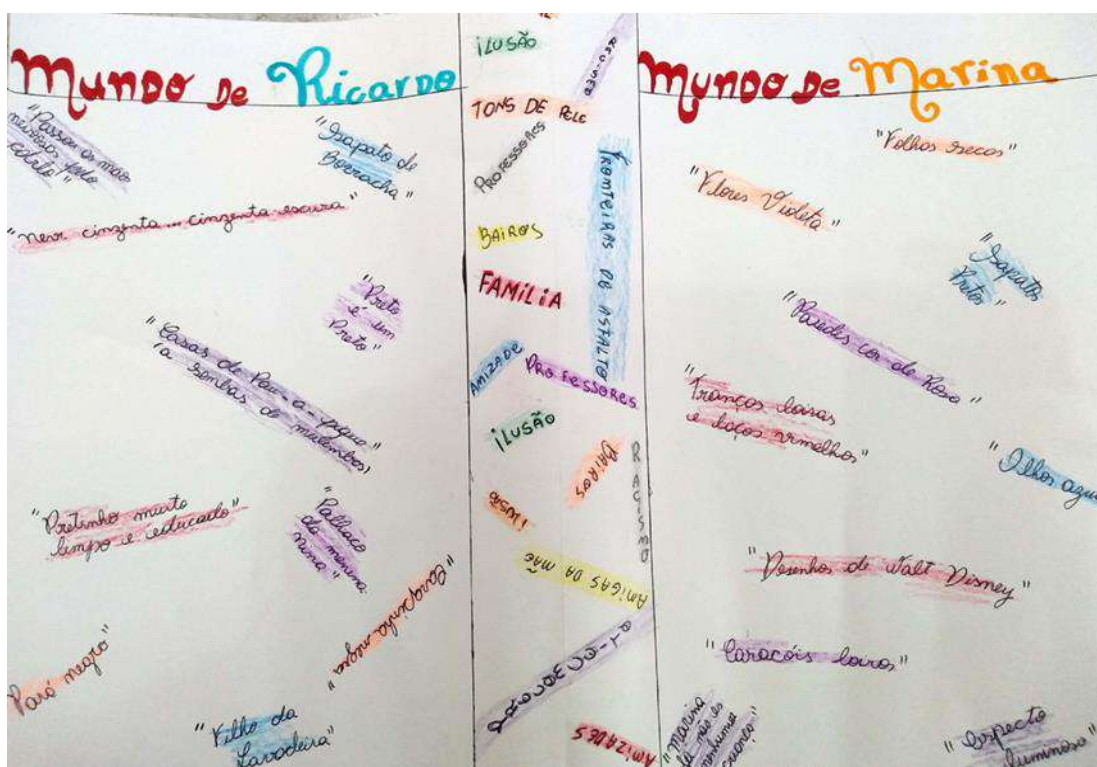 Mundo de Ricardo
"Passou as mão
nervosas pelo
cabelo"
"Sapato de
Borracha"
"neve cinzenta... cinzenta escura"
"Preto
é um
Preto"
"Casas de Pau-a-pique
(a sombas de mulembos)
"Pretinho muito
limpo e educado"
"Palhaço
da menina
nina"
"Carapinha negra"
"Paró negro"
"Filho da
Lavadeira"
ILUSÃO
TONS DE PELE
PROFESSORES
FRONTEIRAS DE ASFALTO
BAIROS
FAMÍLIA
AMIZADE
PROFESSORES
ILUSÃO
BAIROS
RACISMO
ILUSÃO
AMIGAS DA MÃE
AMIZADES
Mundo de Marina
"Folhas secas"
"Flores Violeta"
"Sapatos
Pretos"
"Paredes cor de Rosa"
"Tranças loiras
e laços vermelhos"
"Olhos azu
"Desenhos de Walt Disney"
"Caracóis loiros"
"Marina
já não és
nenhuma
criança"
"Aspecto
luminoso"